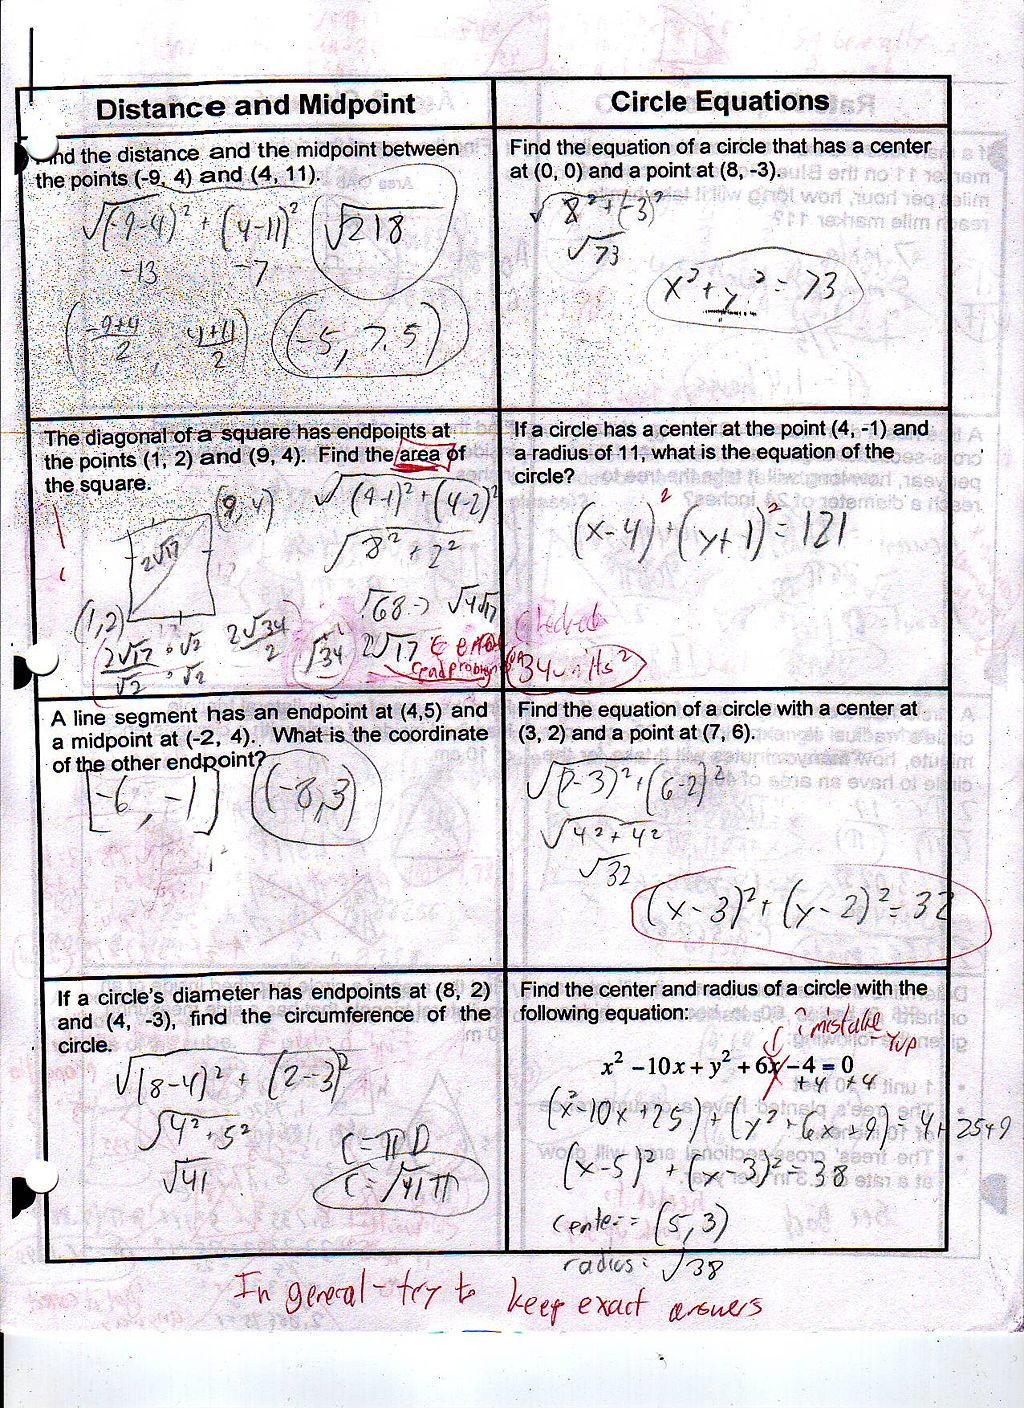 Distance and Midpoint
Find the distance and the midpoint between
the points (-9, 4) and (4, 11).
√(-9-4)² + (4-11)² √218
-13 -7
(-9+4/2, 4+11/2) (-5, 7.5)
Circle Equations
Find the equation of a circle that has a center
at (0, 0) and a point at (8, -3).
√8²+(-3)²
√73
x²+y²=73
The diagonal of a square has endpoints at
the points (1, 2) and (9, 4). Find the area of
the square.
(9,4) √(9-1)²+(4-2)²
2√17 √8²+2²
√68 → √4√17
(1,2) 2√17/√2 · √2/√2 2√34/2 √34 2√17 ← error
34 units²
If a circle has a center at the point (4, -1) and
a radius of 11, what is the equation of the
circle?
(x-4)²+(y+1)²=121
Checked
A line segment has an endpoint at (4,5) and
a midpoint at (-2, 4). What is the coordinate
of the other endpoint?
[-6, -1] (-8,3)
Find the equation of a circle with a center at
(3, 2) and a point at (7, 6).
√(7-3)²+(6-2)²
√4²+4²
√32
(x-3)²+(y-2)²=32
If a circle's diameter has endpoints at (8, 2)
and (4, -3), find the circumference of the
circle.
√(8-4)² + (2--3)²
√4²+5²
√41
C=πD
C=√41π
Find the center and radius of a circle with the
following equation:
? mistake
yup
x² −10x + y² + 6x − 4 = 0
+4 +4
(x²-10x+25)+(y²+6x+9)=4+25+9
(x-5)²+(x-3)²=38
center= (5,3)
radius: √38
In general - try to keep exact answers